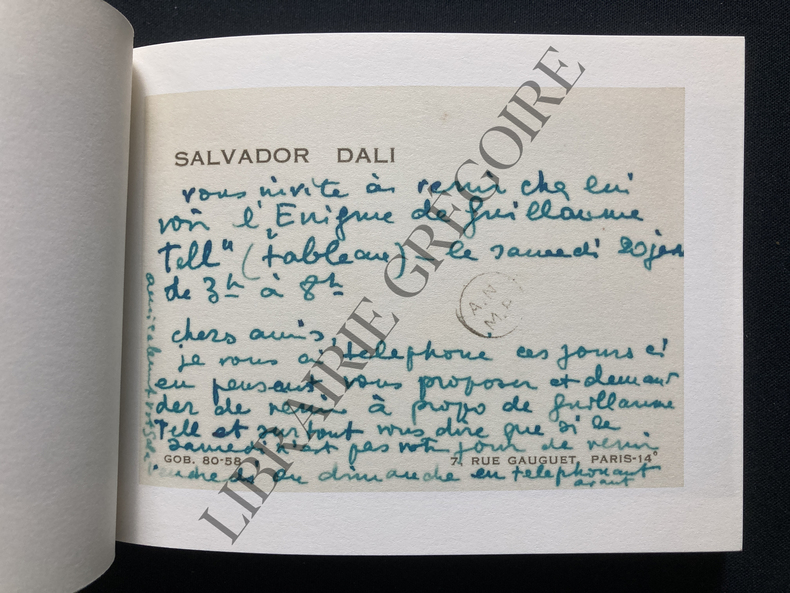 SALVADOR DALI
vous invite à venir che lui
voir l'Enigme de Guillaume
Tell" (tableau) le samedi 20 jan
de 3h à 8h
A.N
M.
chers amis,
je vous ai telephone ces jours ci
en pensant vous proposer et deman
der de venir à propo de Guillaume
Tell et surtout vous dire que si le
samedi n'est pas votre jour de venir
GOB. 80-58
7, RUE GAUGUET, PARIS-14°
vendredi ou dimanche en telephonant
avant
LIBRAIRIE GREGOIRE